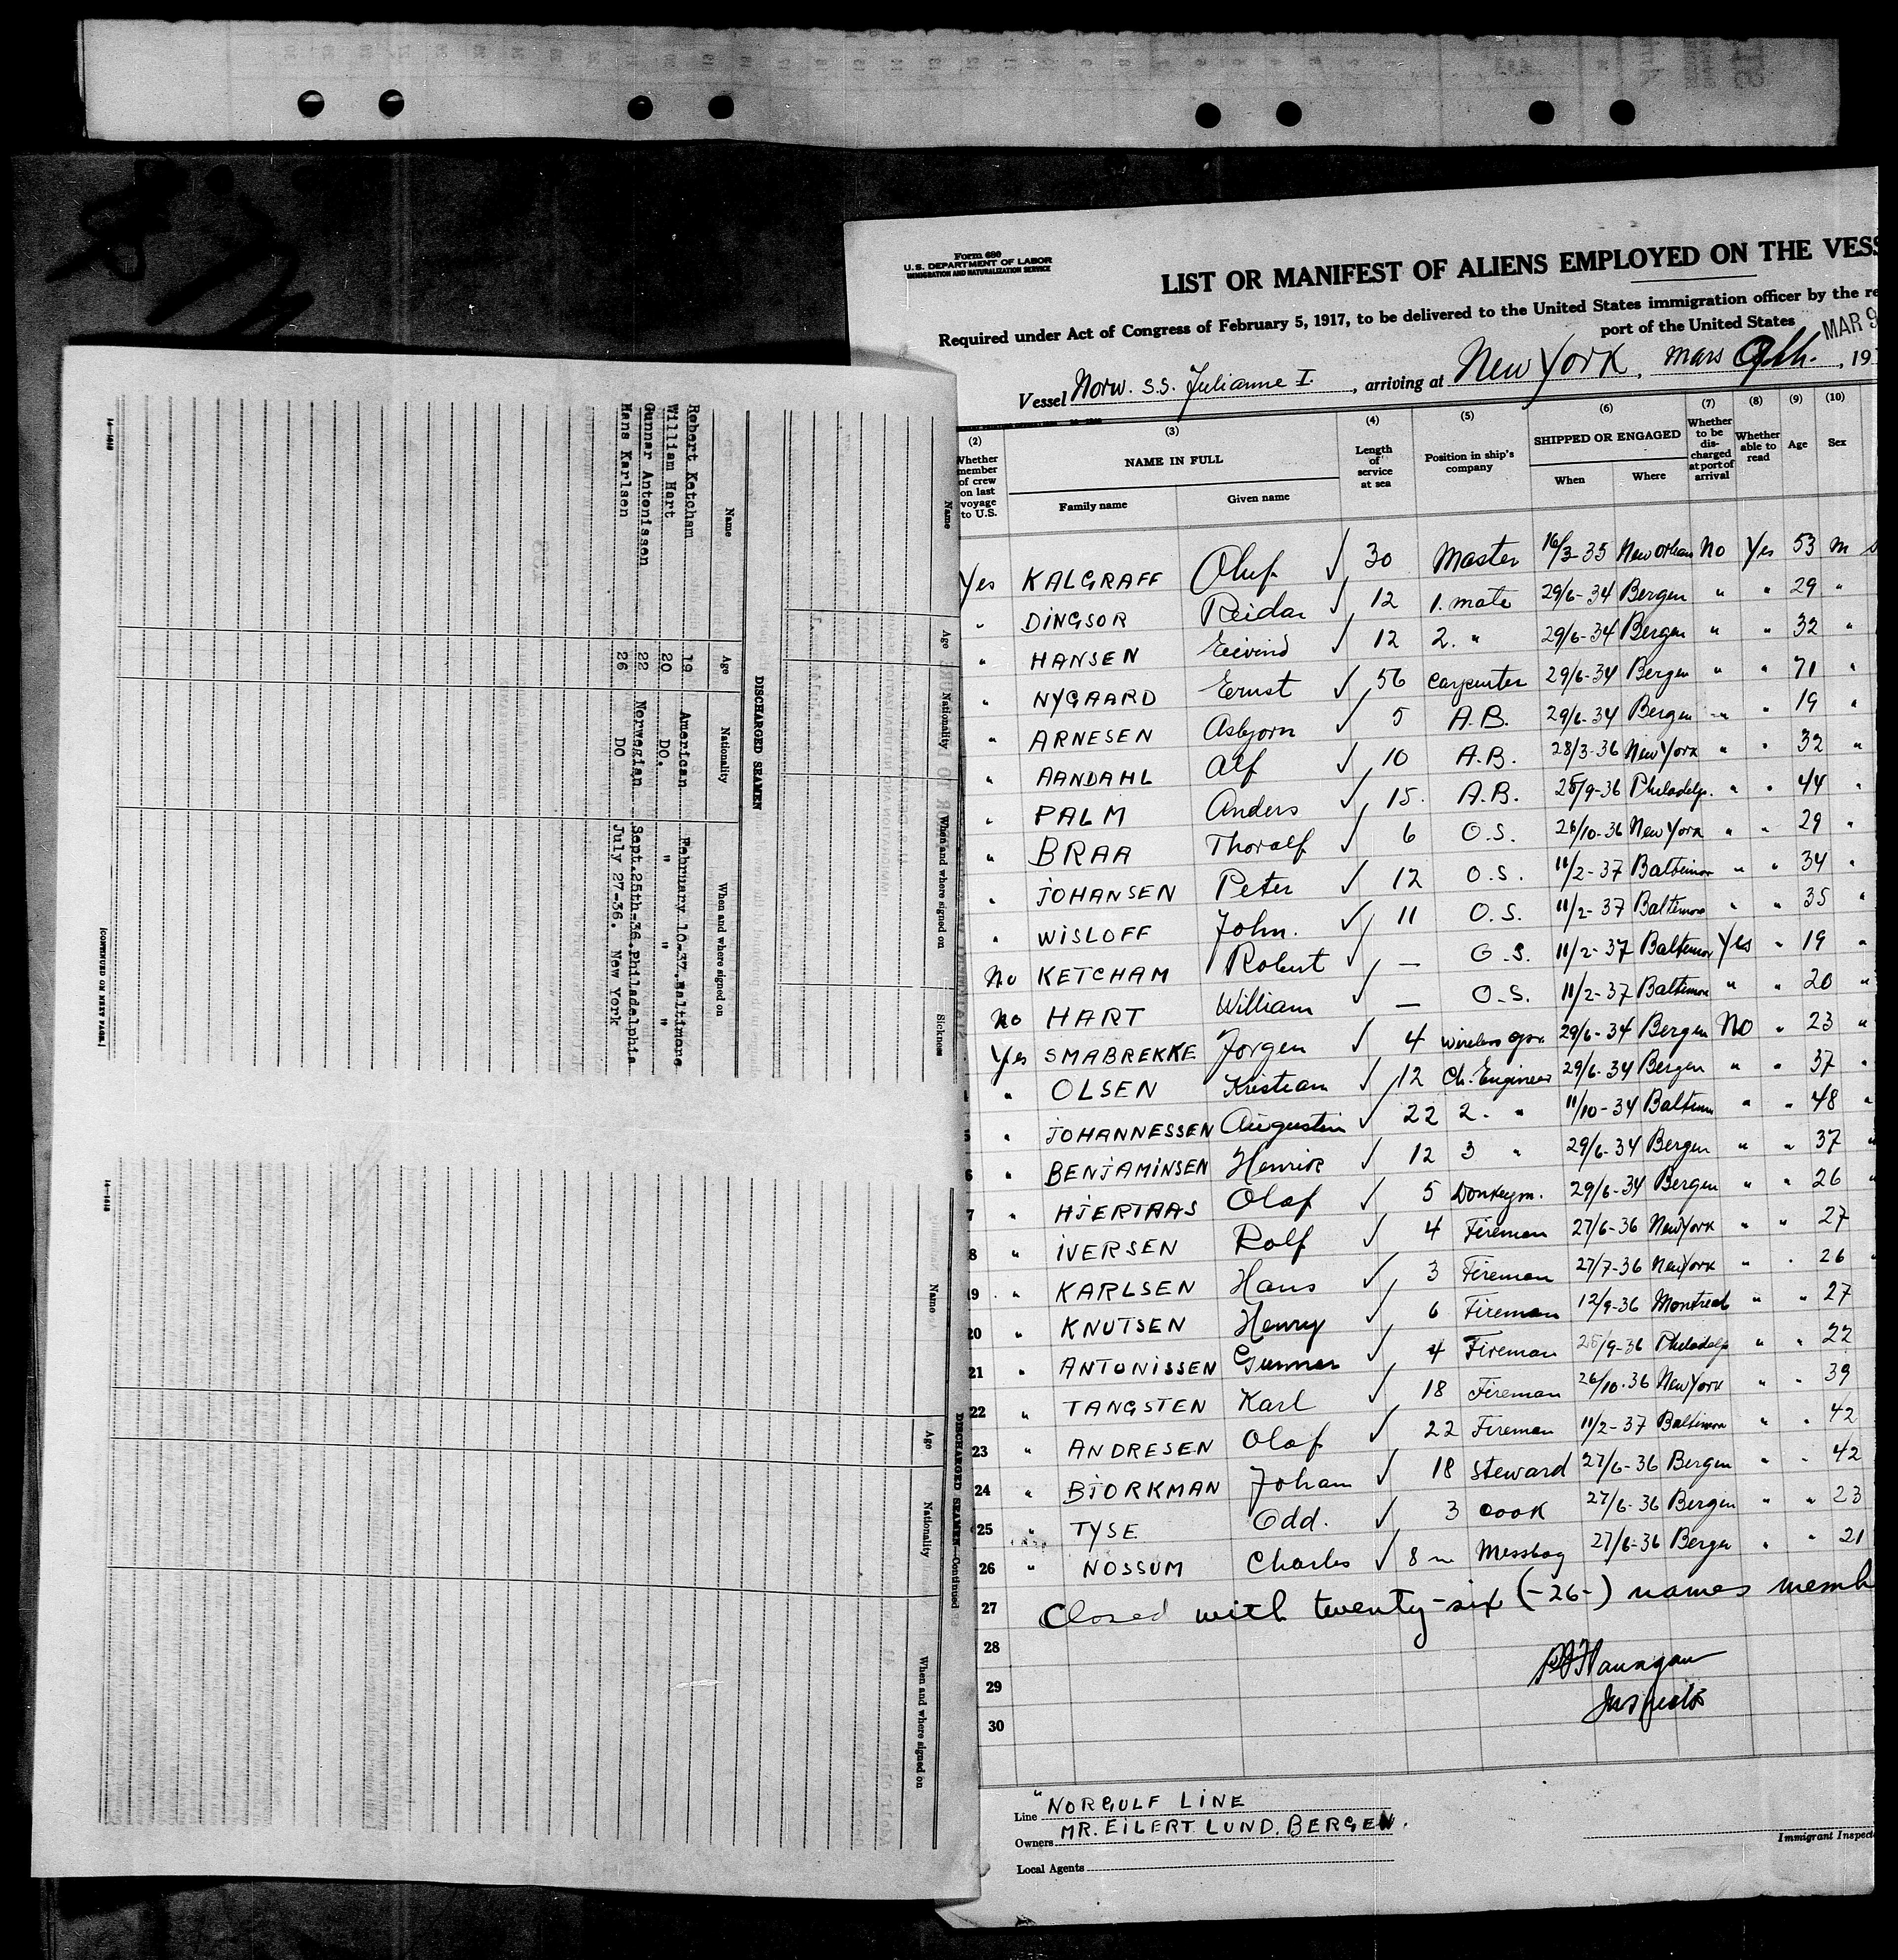 Form 680
U. S. DEPARTMENT OF LABOR
IMMIGRATION AND NATURALIZATION SERVICE
LIST OR MANIFEST OF ALIENS EMPLOYED ON THE VESS
Required under Act of Congress of February 5, 1917, to be delivered to the United States immigration officer by the re
port of the United States
MAR 9
Vessel Norw. S.S. Julianne I. , arriving at New York , Mars 9th. , 19
(2) (3) (4) (5) (6) (7) (8) (9) (10)
Whether member of crew on last voyage to U.S. NAME IN FULL Length of service at sea Position in ship's company SHIPPED OR ENGAGED Whether to be discharged at port of arrival Whether able to read Age Sex
Family name Given name When Where
Yes KALGRAFF Oluf ✓ 30 Master 16/3-35 New Orleans No Yes 53 m
" DINGSOR Reidar ✓ 12 1. mate 29/6-34 Bergen " " 29 "
" HANSEN Eivind ✓ 12 2. " 29/6-34 Bergen " " 32 "
" NYGAARD Ernst ✓ 56 Carpenter 29/6-34 Bergen " " 71 "
" ARNESEN Asbjorn ✓ 5 A.B. 29/6-34 Bergen " " 19 "
" AANDAHL Alf ✓ 10 A.B. 28/3-36 New York " " 32 "
" PALM Anders ✓ 15. A.B. 25/9-36 Philadelp. " " 44 "
" BRAA Thoralf ✓ 6 O.S. 26/10-36 New York " " 29 "
" JOHANSEN Peter ✓ 12 O.S. 11/2-37 Baltimor " " 34 "
" WISLOFF John. ✓ 11 O.S. 11/2-37 Baltimore " " 35 "
No KETCHAM Robert ✓ — O.S. 11/2-37 Baltimor Yes " 19 "
No HART William ✓ — O.S. 11/2-37 Baltimore " " 20 "
Yes SMABREKKE Jorgen ✓ 4 Wireless opr. 29/6-34 Bergen No " 23 "
" OLSEN Kristian ✓ 12 Ch. Engineer 29/6-34 Bergen " " 37 "
5 " JOHANNESSEN Augustin ✓ 22 2. " 11/10-34 Baltim " " 48 "
6 " BENJAMINSEN Henrik ✓ 12 3 " 29/6-34 Bergen " " 37 "
7 " HJERTAAS Olaf ✓ 5 Donkeym. 29/6-34 Bergen " " 26 "
8 " IVERSEN Rolf ✓ 4 Fireman 27/6-36 New York " " 27
19 " KARLSEN Hans ✓ 3 Fireman 27/7-36 New York " " 26
20 " KNUTSEN Henry ✓ 6 Fireman 12/9-36 Montreal " " 27
21 " ANTONISSEN Gunnar ✓ 4 Fireman 25/9-36 Philadelp " " 22
22 " TANGSTEN Karl ✓ 18 Fireman 26/10-36 New York " " 39
23 " ANDRESEN Olaf ✓ 22 Fireman 11/2-37 Baltimore " " 42
24 " BJORKMAN Johan ✓ 18 Steward 27/6-36 Bergen " " 42
25 " TYSE Odd. ✓ 3 Cook 27/6-36 Bergen " " 23
26 " NOSSUM Charles ✓ 8 m Messboy 27/6-36 Bergen " " 21
27 Closed with twenty-six (-26-) names memb
28
29
30
Inspector
Line "NORGULF LINE
Owners MR. EILERT LUND. BERGEN.
Local Agents
Immigrant Inspect
Name Age Nationality When and where signed on Sickness
DISCHARGED SEAMEN
Name Age Nationality When and where signed on
Robert Ketcham 19 American February 10-37. Baltimore
William Hart 20 DO. " " "
Gunnar Antonissen 22 Norwegian Sept. 25th-36. Philadelphia
Hans Karlsen 26 DO July 27-36. New York
[CONTINUED ON NEXT PAGE.]
DISCHARGED SEAMEN—Continued
Name Age Nationality When and where signed on